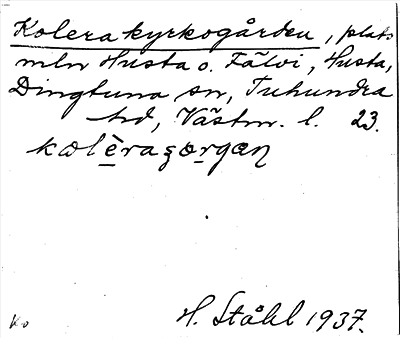 Kolerakyrkogården, plats
mln Husta o. Fälvi, Husta,
Dingtuna sn, Tuhundra
hd, Västm. l. 23.
kolèragorgan
H. Ståhl 1937.
Ko